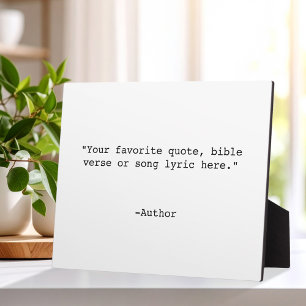 "Your favorite quote, bible
verse or song lyric here."
–Author